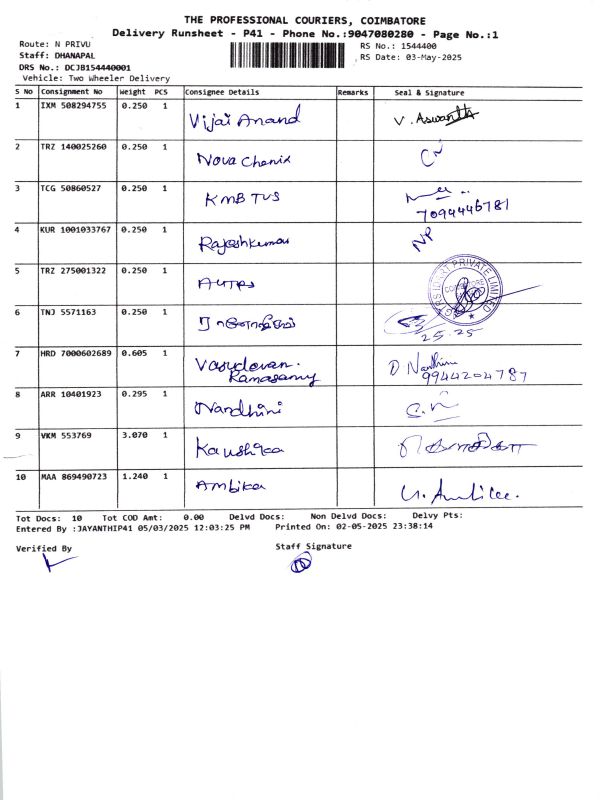 THE PROFESSIONAL COURIERS, COIMBATORE
Delivery Runsheet - P41 - Phone No.:9047080280 - Page No.:1
Route: N PRIVU
Staff: DHANAPAL
DRS No.: DCJB154440001
Vehicle: Two Wheeler Delivery
RS No.: 1544400
RS Date: 03-May-2025
S No Consignment No Weight PCS Consignee Details Remarks Seal & Signature
1 IXM 508294755 0.250 1 Vijai Anand V. Aswanth
2 TRZ 140025260 0.250 1 Nova Chenix
3 TCG 50860527 0.250 1 KMB TVS
7094446781
4 KUR 1001033767 0.250 1 Rajeshkumar NP
5 TRZ 275001322 0.250 1
PRIVATE LIMITED
6 TNJ 5571163 0.250 1
25.25
7 HRD 7000602689 0.605 1 Vasudevan. D Nandhini
Ramasamy 9944204787
8 ARR 10401923 0.295 1 Nandhini
9 VKM 553769 3.070 1 Kaushikaa
10 MAA 869490723 1.240 1 Ambika
Tot Docs: 10 Tot COD Amt: 0.00 Delvd Docs: Non Delvd Docs: Delvy Pts:
Entered By :JAYANTHIP41 05/03/2025 12:03:25 PM Printed On: 02-05-2025 23:38:14
Verified By
Staff Signature